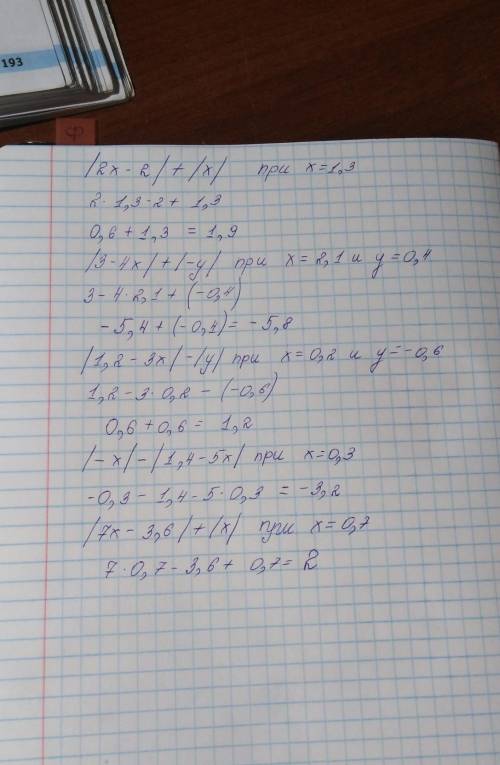 193
|2x - 2| + |x| при x=1,3
2·1,3-2+ 1,3
0,6+1,3 = 1,9
|3-4x|+|-y| при x=2,1 и y=0,4
3-4·2,1+(-0,4)
-5,4+(-0,4)= -5,8
|1,2-3x|-|y| при x=0,2 и y=-0,6
1,2-3·0,2-(-0,6)
0,6+0,6= 1,2
|-x|-|1,4-5x| при x=0,3
-0,3-1,4-5·0,3 = -3,2
|7x-3,6|+|x| при x=0,7
7·0,7-3,6+ 0,7= 2